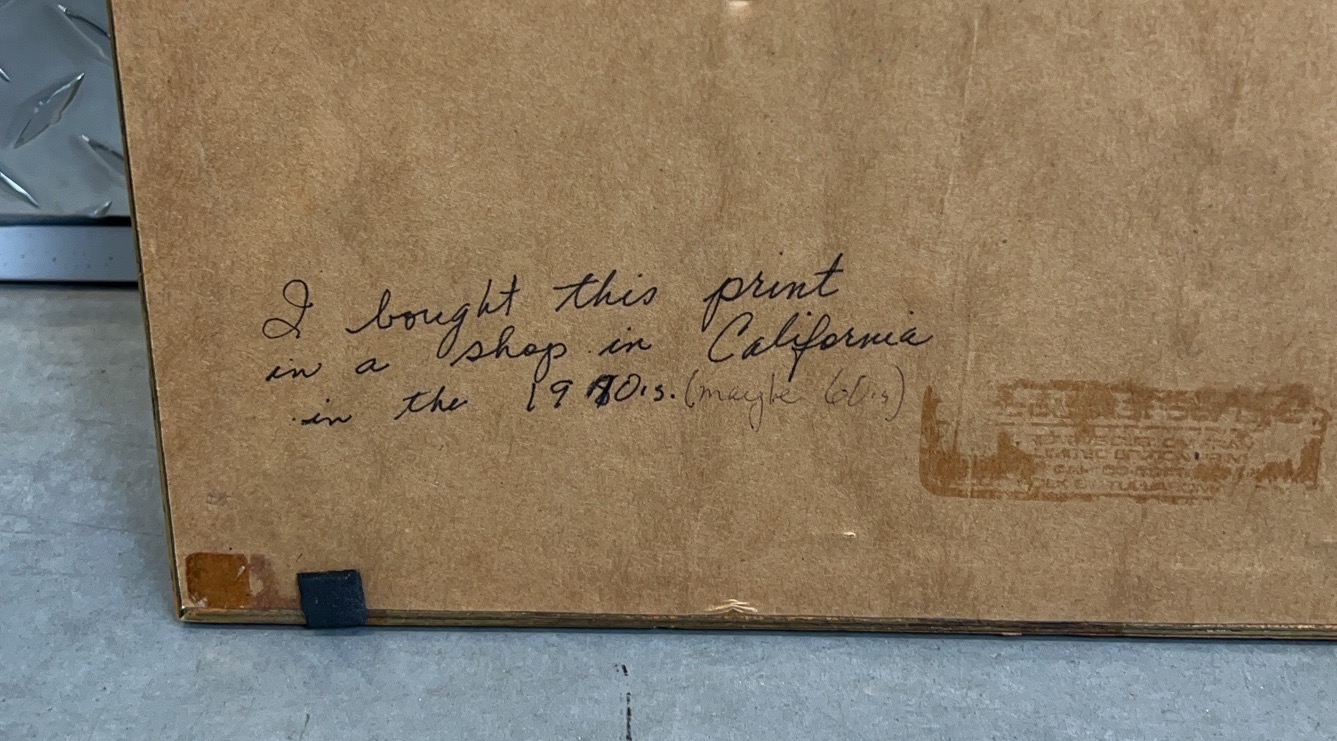 I bought this print
in a shop in California
in the 1970's. (maybe 60's)
LIMITED EDITION PRINT